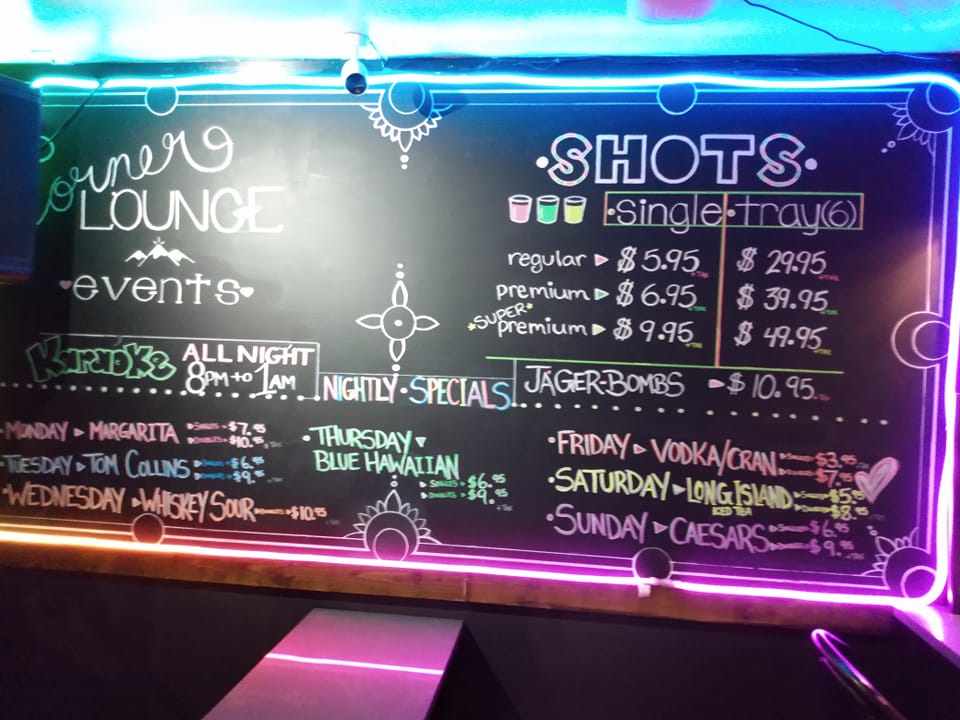 Corner
LOUNGE
events
Karaoke ALL NIGHT
8PM to 1AM
SHOTS
single tray(6)
regular $5.95 +TAX $29.95 +TAX
premium $6.95 +TAX $39.95 +TAX
*SUPER*
premium $9.95 +TAX $49.95 +TAX
JÄGER-BOMBS $10.95 +TAX
NIGHTLY-SPECIALS
•MONDAY MARGARITA SINGLES $7.95
DOUBLES $10.95 +TAX
•TUESDAY TOM COLLINS SINGLES $6.95
DOUBLES $9.95 +TAX
•WEDNESDAY WHISKEY SOUR DOUBLES $10.95 +TAX
•THURSDAY
BLUE HAWAIIAN
SINGLES $6.95
DOUBLES $9.95 +TAX
•FRIDAY VODKA/CRAN SINGLES $3.95
DOUBLES $7.95
•SATURDAY LONG ISLAND SINGLES $5.95
ICED TEA DOUBLES $8.95 +TAX
•SUNDAY CAESARS SINGLES $6.95
DOUBLES $9.95 +TAX